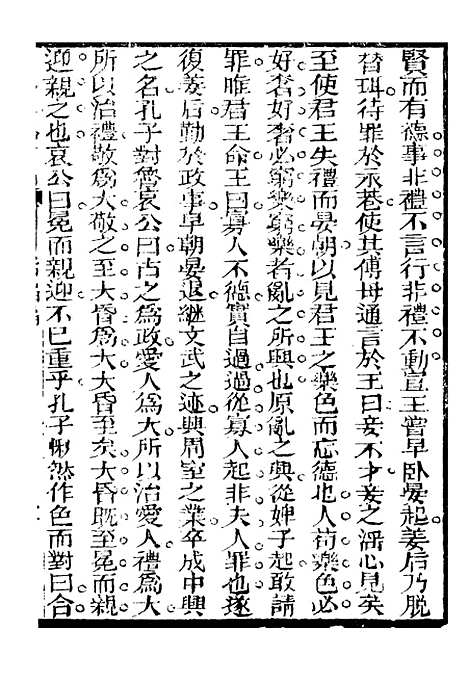 賢而有德事非禮不言行非禮不動宣王嘗早卧晏起姜后乃脫
簪珥待罪於永巷使其傅母通言於王曰妾不才妾之淫心見矣
至使君王失禮而晏朝以見君王之樂色而忘德也人苟樂色必
好奢好奢必窮樂窮樂者亂之所興也原亂之興從婢子起敢請
罪唯君王命王曰寡人不德實自過過從寡人起非夫人罪也遂
復姜后勤於政事早朝晏退繼文武之迹興周室之業卒成中興
之名孔子對魯哀公曰古之爲政愛人爲大所以治愛人禮爲大
所以治禮敬爲大敬之至大昏爲大大昏至矣大昏既至冕而親
迎親之也哀公曰冕而親迎不已重乎孔子愀然作色而對曰合